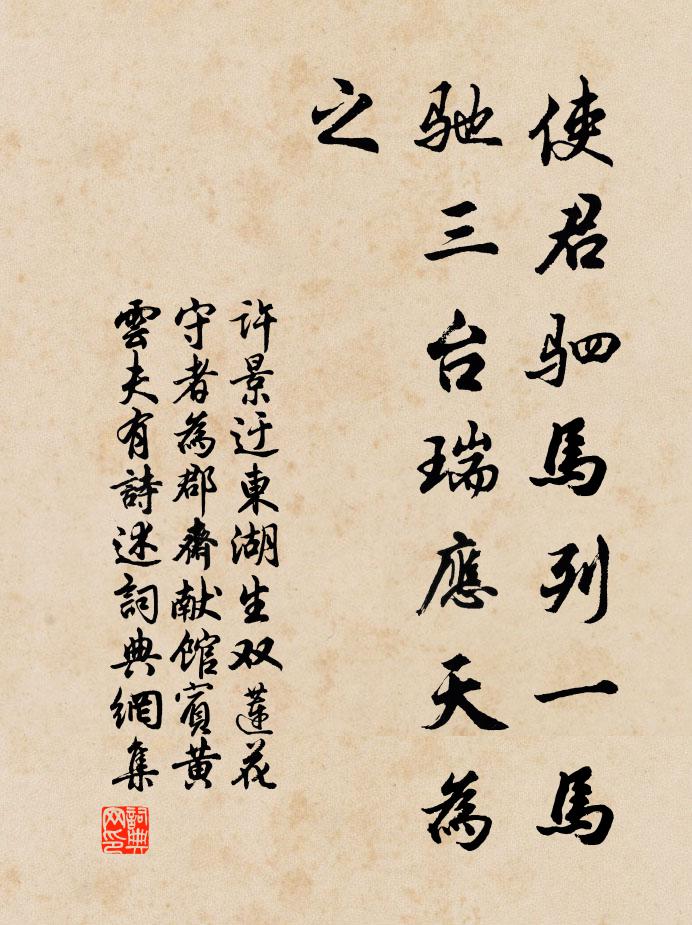 使君驷馬列一馬
驰三台瑞應天為
之
许景迂東湖生双蓮花
守者為郡齋献館賓黄
雲夫有詩述詞典網集
詞典网印